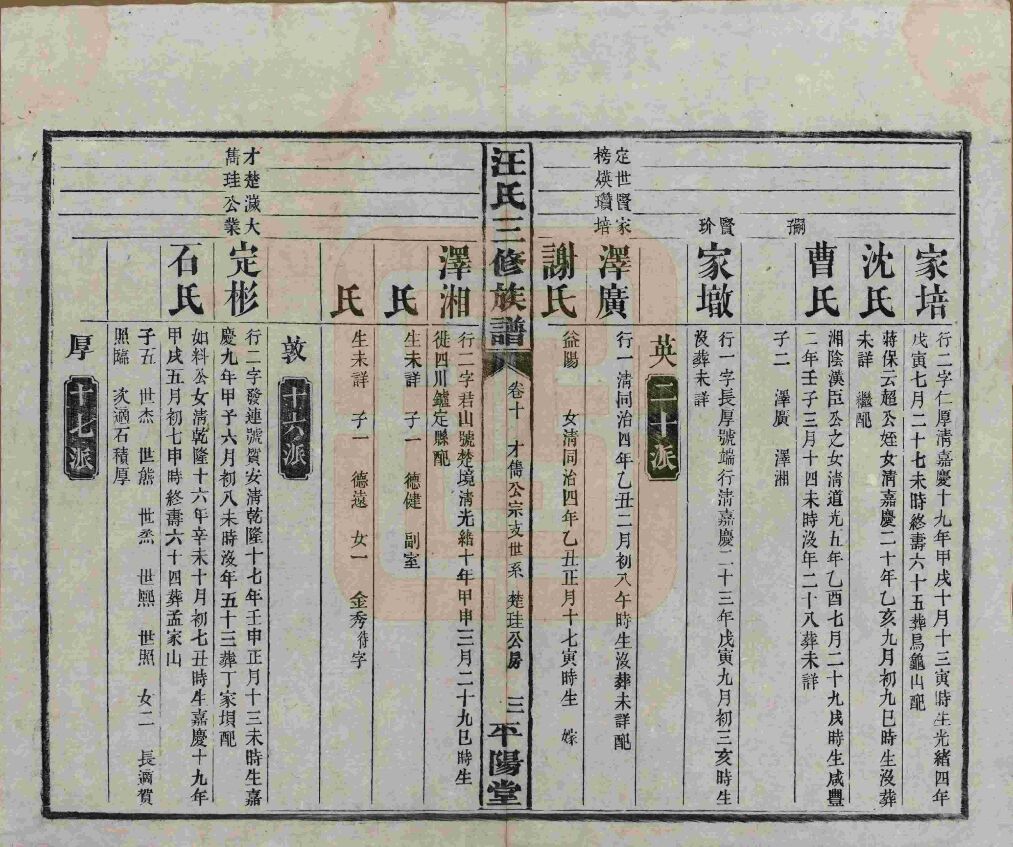 家培
行二字仁厚清嘉慶十九年甲戌十月十三寅時生光緒四年
戊寅七月二十七未時終壽六十五葬烏龜山配
沈氏
蔣保云超公姪女清嘉慶二十年乙亥九月初九巳時生沒葬
未詳 繼配
嗣
曹氏
湘陰漢臣公之女清道光五年乙酉七月二十九戌時生咸豐
二年壬子三月十四未時沒年二十八葬未詳
子二 澤廣 澤湘
賢
玠
家墩
行一字長厚號端行清嘉慶二十三年戊寅九月初三亥時生
沒葬未詳
英 二十派
定世賢家
榜煐瓚培
澤廣
行一清同治四年乙丑二月初八午時生沒葬未詳配
謝氏
益陽 女清同治四年乙丑正月十七寅時生 嫁
汪氏三修族譜 卷十 才儁公宗支世系 楚珪公房 三 平陽堂
澤湘
行二字君山號楚境清光緒十年甲申三月二十九巳時生
徙四川鑪定縣配
氏
生未詳 子一 德健 副室
氏
生未詳 子一 德遠 女一 金秀待字
敦 十六派
才楚濊大
雋珪公業
定彬
行二字發連號質安清乾隆十七年壬申正月十三未時生嘉
慶九年甲子六月初八未時沒年五十三葬丁家垻配
石氏
如料公女清乾隆十六年辛未十月初七丑時生嘉慶十九年
甲戌五月初七申時終壽六十四葬孟家山
子五 世杰 世熊 世烝 世熙 世照 女二 長適賀
照臨 次適石積厚
厚 十七派